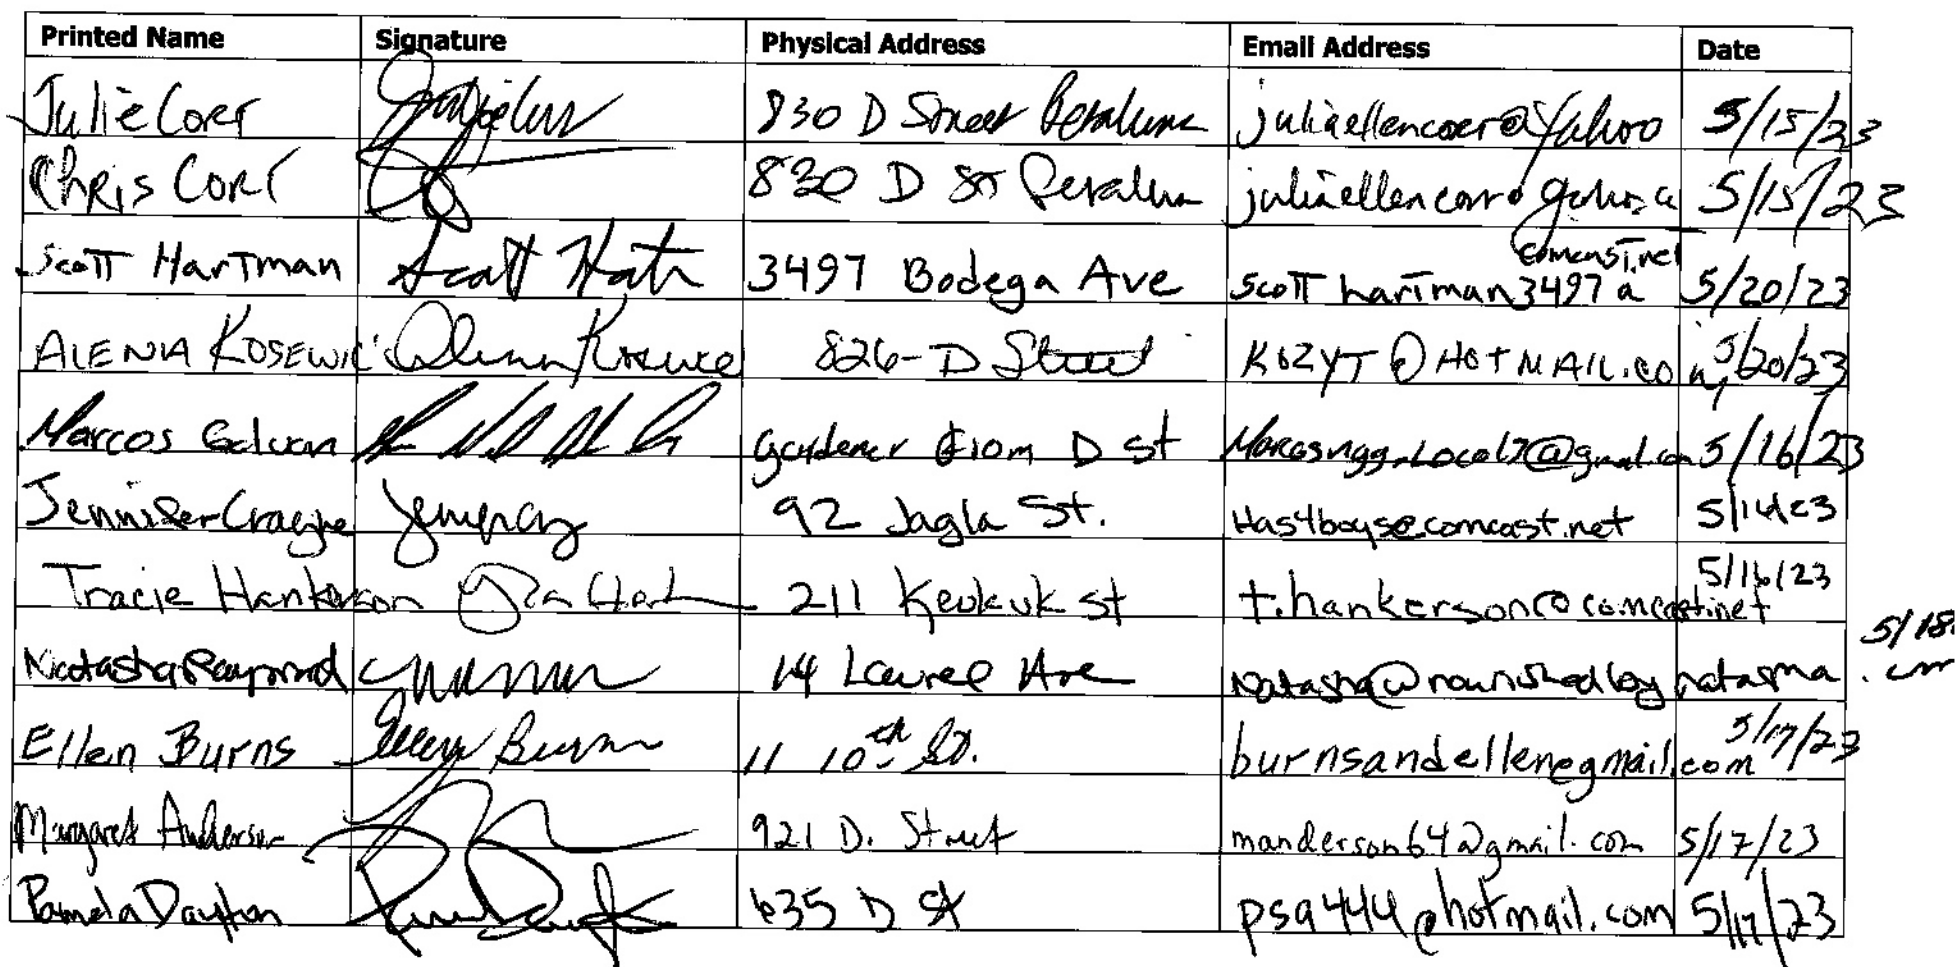 Printed Name Signature Physical Address Email Address Date
Julie Corr 830 D Street Petaluma juliaellencoer@Yahoo 5/15/23
Chris Corr 830 D St Petaluma 5/15/23
comcast.net
Scott Hartman Scott 3497 Bodega Ave scotthartman3497a 5/20/23
ALENIA KOSEWIC 826-D Street KOZYT@HOTMAIL.COM 5/20/23
Marcos Galvan gardener from D st 5/16/23
Jennifer Cragne 92 Jagla St. Has4boys@comcast.net
Tracie Hankerson 211 Keokuk st t.hankerson@comcast.net 5/16/23
5/18
Natasha Raymond 14 Laurel Ave Natasha@nourishedbynatasha.com
Ellen Burns Ellen Burns 11 10th St. burnsandellen@gmail.com 5/17/23
Margaret Anderson 921 D. Street manderson64@gmail.com 5/17/23
Pamela Dayton 635 D St psa444@hotmail.com 5/17/23